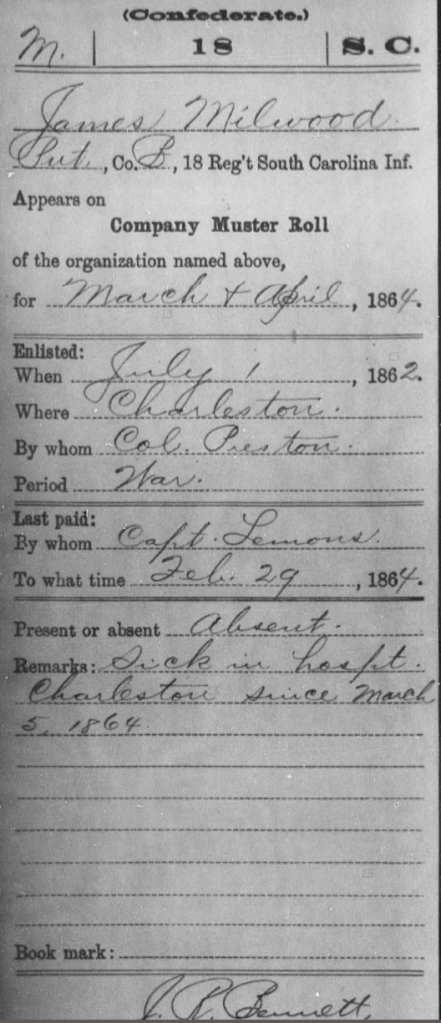 (Confederate.)
M. | 18 | S. C.
James Milwood.
Pvt., Co. B, 18 Reg't South Carolina Inf.
Appears on
Company Muster Roll
of the organization named above,
for March & April, 1864.
Enlisted:
When July 1, 1862.
Where Charleston.
By whom Col. Preston.
Period War.
Last paid:
By whom Capt. Lemons.
To what time Feb. 29, 1864.
Present or absent Absent.
Remarks: Sick in hospt.
Charleston since March
5, 1864.
Book mark:
J. R. Bennett,